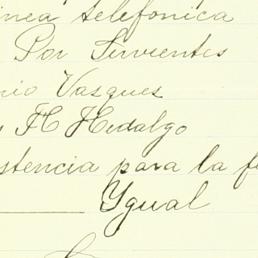 inea telefonica
Por Sirvientes
nio Vasques
H Hidalgo
stencia para la f
Ygual